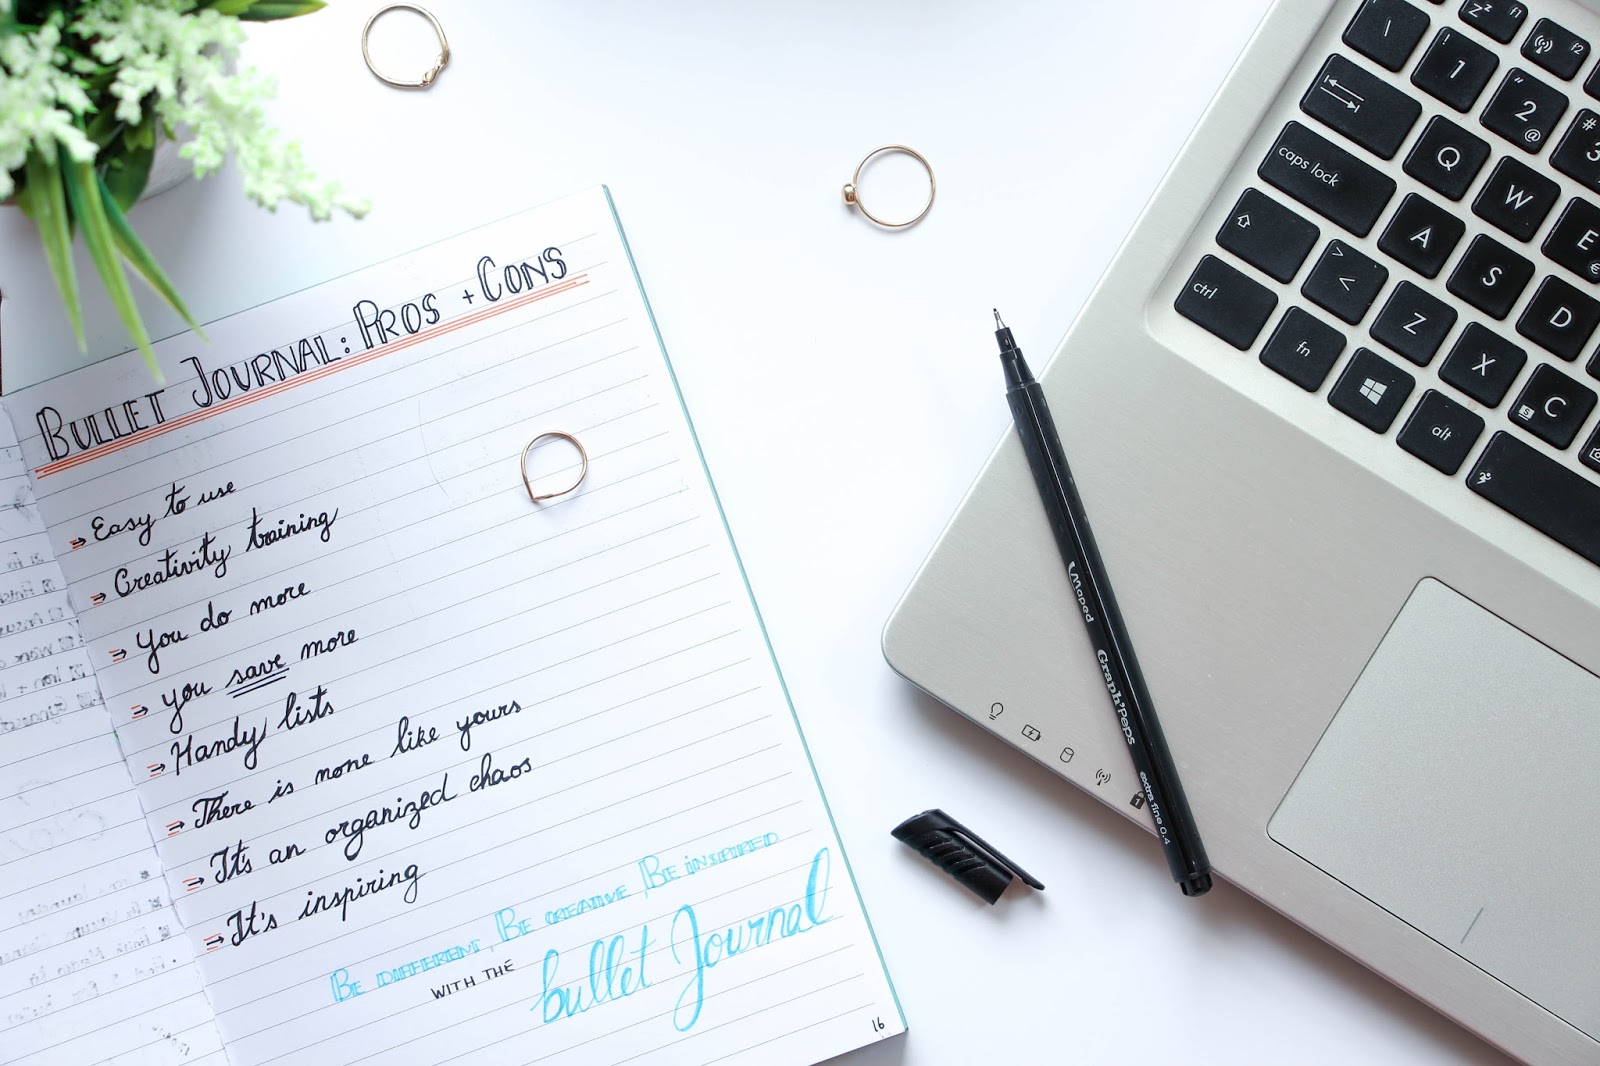 BULLET JOURNAL: PROS + CONS
⇒ Easy to use
⇒ Creativity training
⇒ You do more
⇒ you save more
⇒ Handy lists
⇒ There is none like yours
⇒ It's an organized chaos
⇒ It's inspiring
BE DIFFERENT, BE CREATIVE, BE INSPIRED
WITH THE bullet Journal
16
Maped Graph'Peps extra fine 0.4
\ | z f1 f2
! 1 " 2 @ # 3
Q W E €
caps lock A S D
> < Z X C
ctrl fn alt